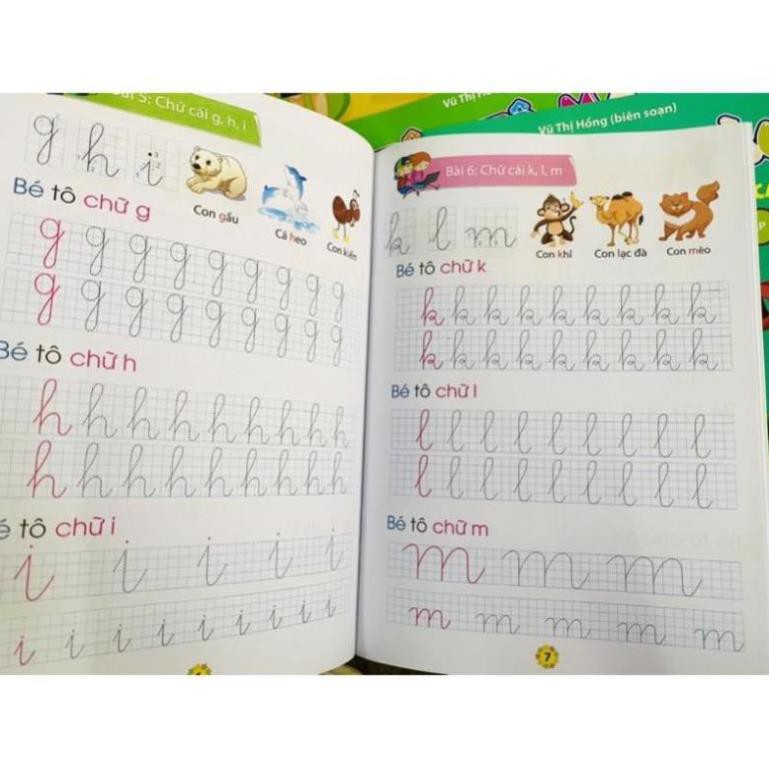 Bài 5: Chữ cái g, h, i
g h i
Con gấu
Cá heo
Con kiến
Bé tô chữ g
g g g g g g g g g
g g g g g g g g g
Bé tô chữ h
h h h h h h h h h
h h h h h h h h h
Bé tô chữ i
i i i i i
i i i i i i i i i
Vũ Thị Hồng (biên soạn)
Bài 6: Chữ cái k, l, m
k l m
Con khỉ
Con lạc đà
Con mèo
Bé tô chữ k
k k k k k k k k k
k k k k k k k k k
Bé tô chữ l
l l l l l l l l l
l l l l l l l l l
Bé tô chữ m
m m m
m m m m m
7